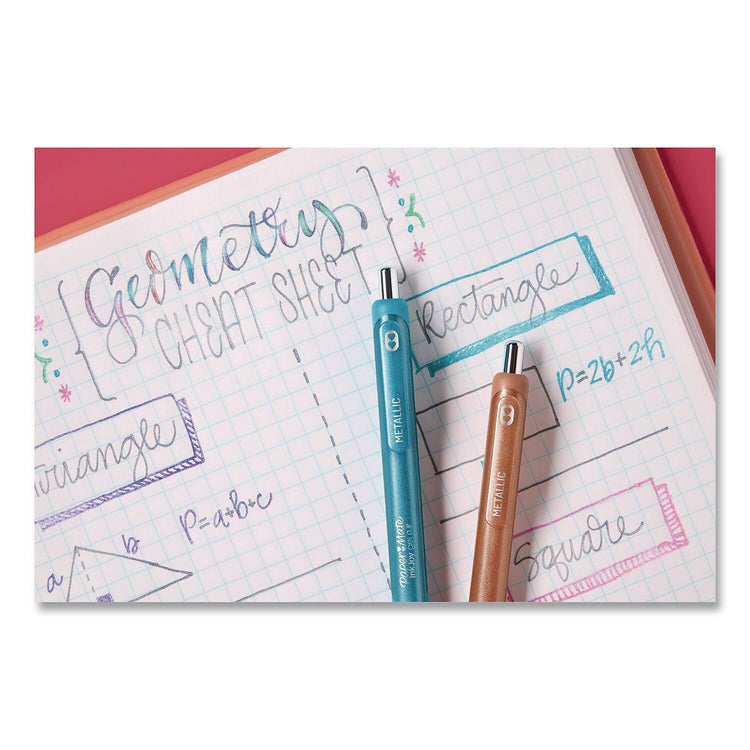 Geometry
CHEAT SHEET
Rectangle
P=2b+2h
Triangle
P=a+b+c
a
b
Square
METALLIC
Paper Mate
InkJoy GEL 0.8
METALLIC